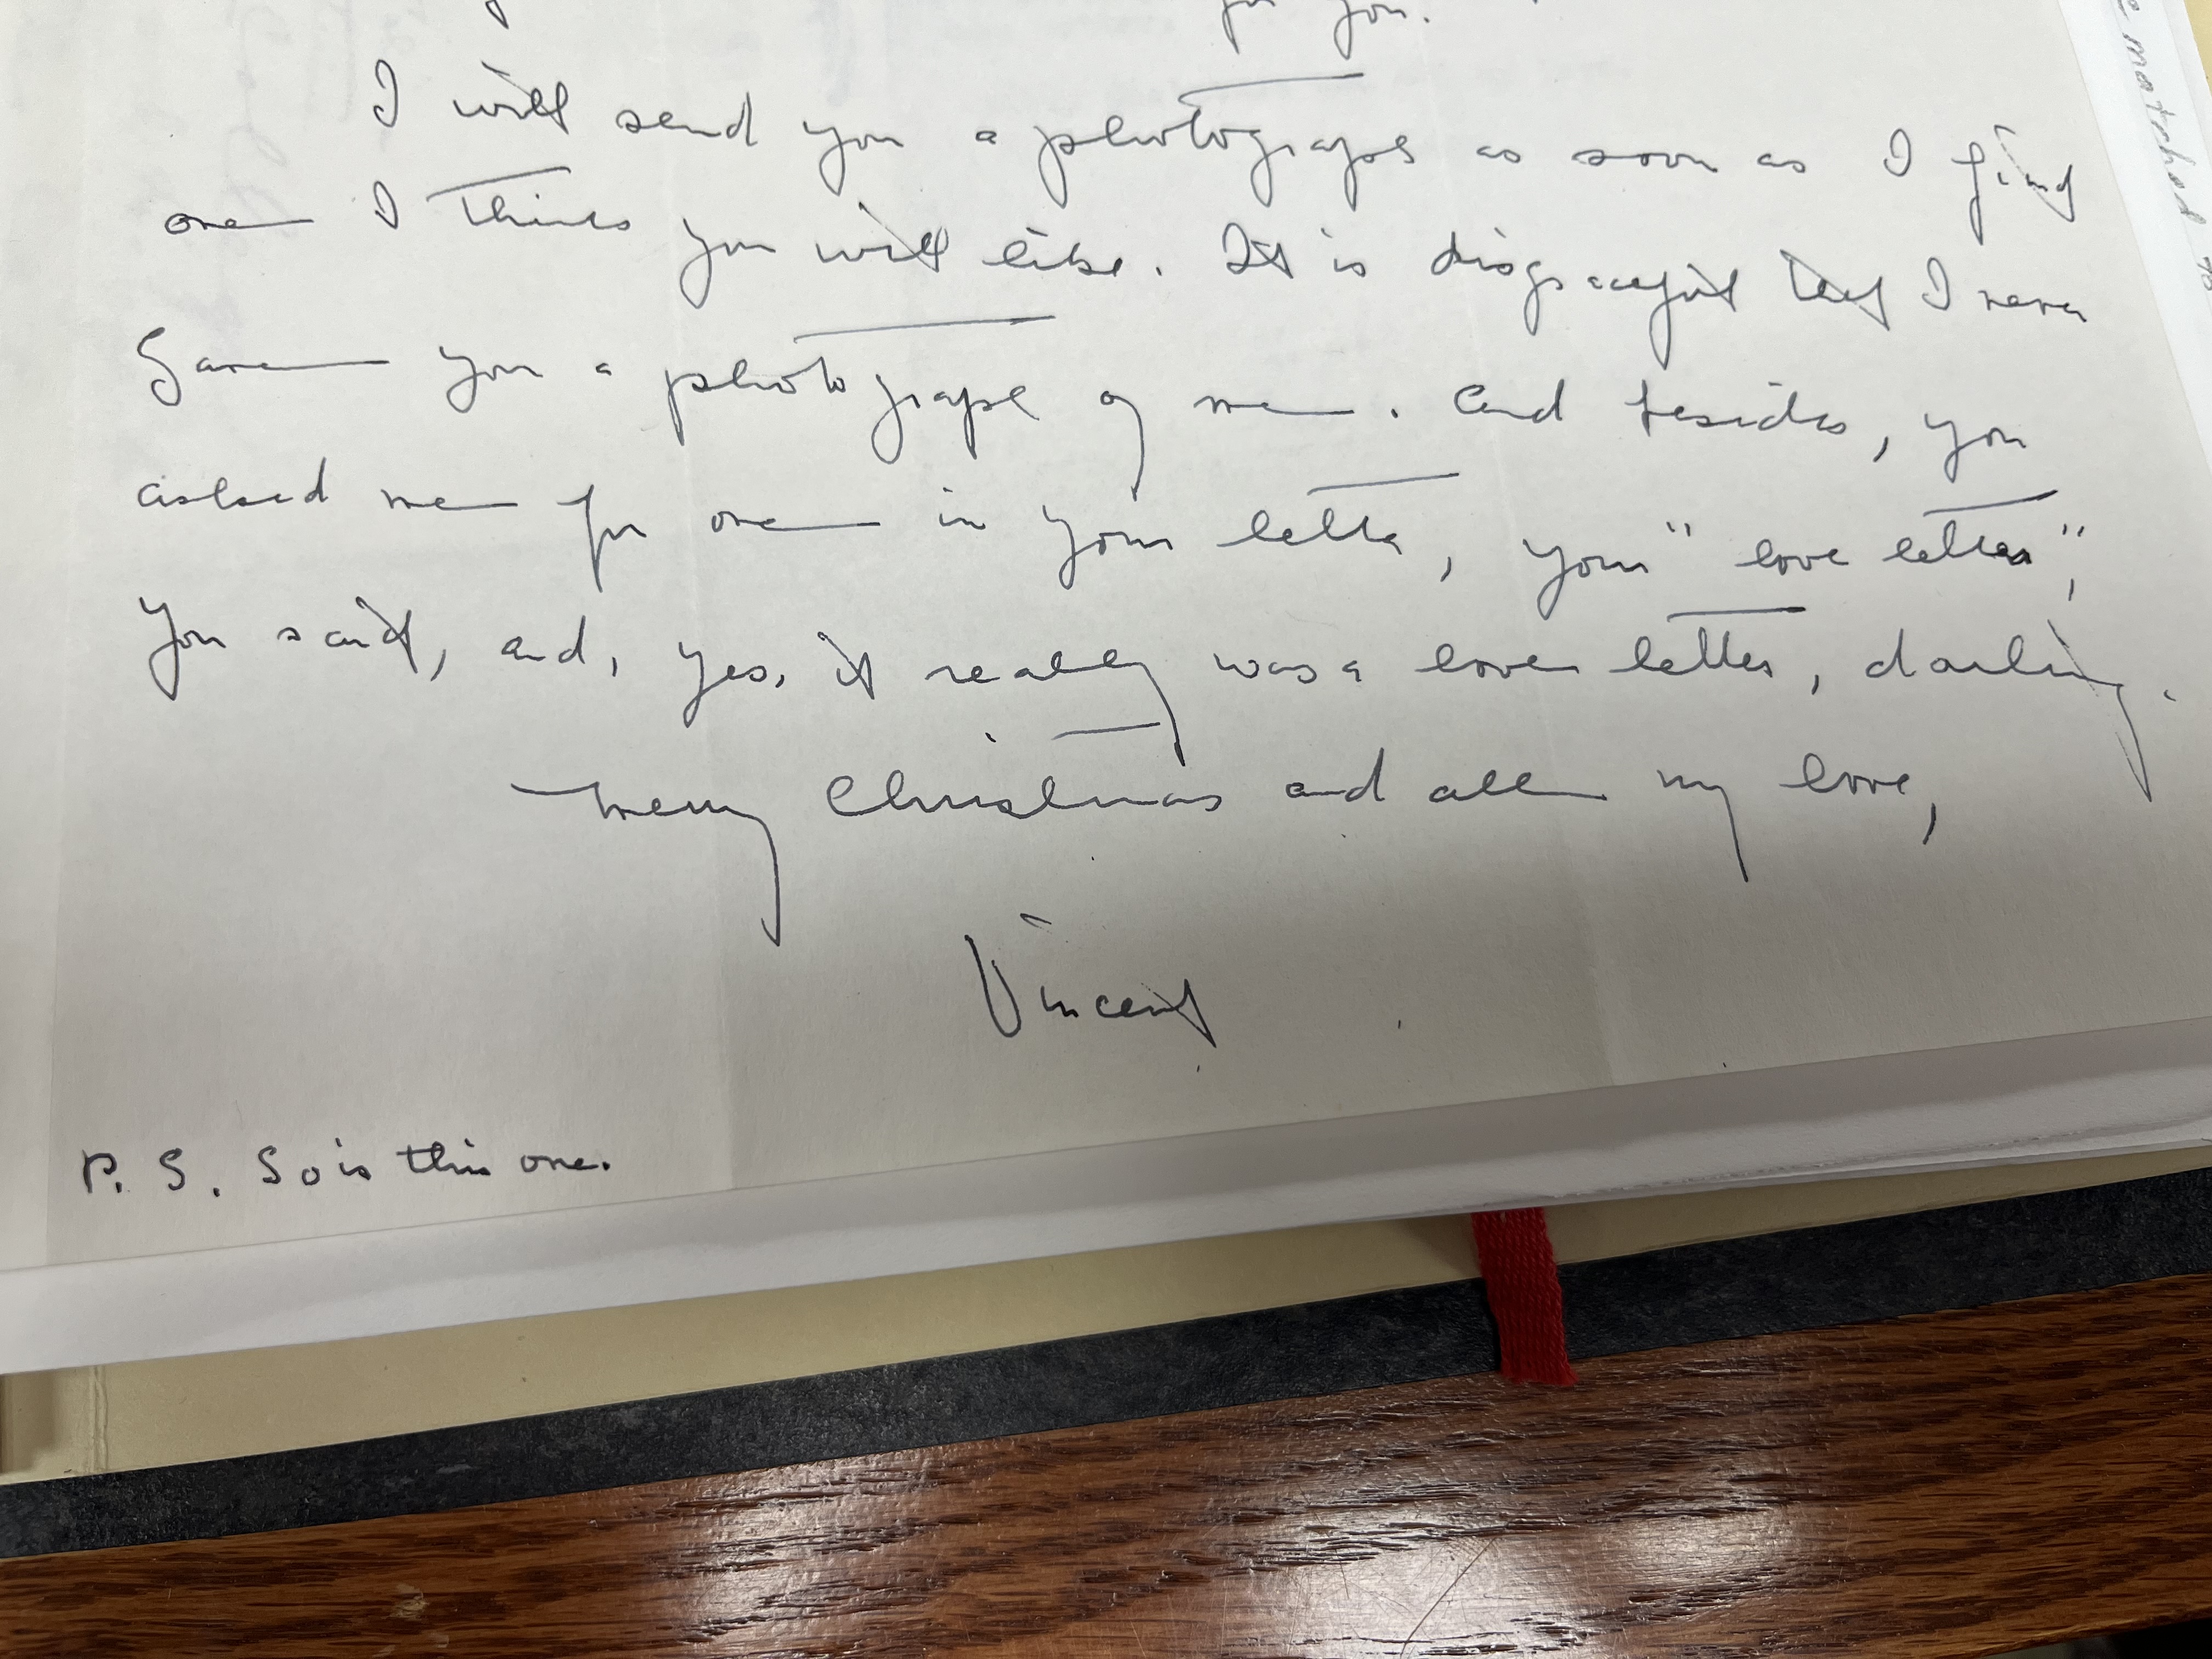 for you.
I will send you a photograph as soon as I find
one I think you will like. It is disgraceful that I never
gave you a photograph of me. And besides, you
asked me for one in your letter, your "love letter",
you said, and, yes, it really was a love letter, darling.
Merry Christmas and all my love,
Vincent
P. S. So is this one.
matched to